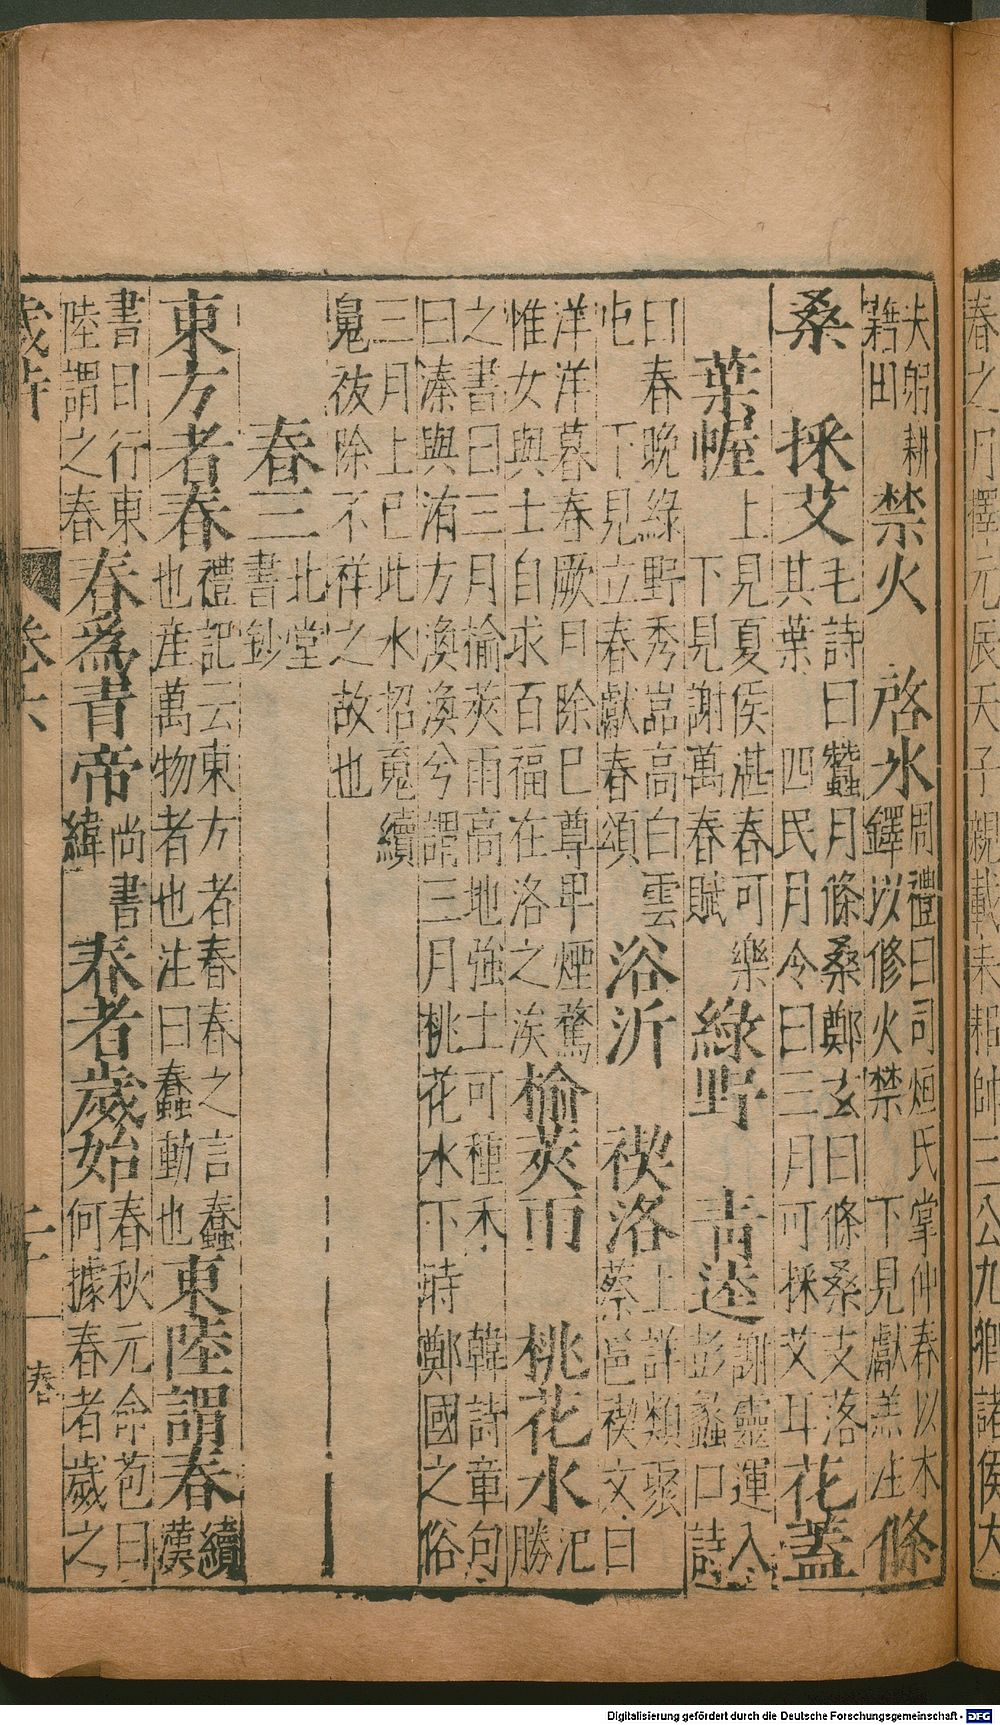 春之月擇元辰天子親載耒耜帥三公九卿諸侯大
夫躬耕籍田禁火 啓氷周禮曰司烜氏掌仲春以木鐸以修火禁 下見獻羔注條
桑 採艾毛詩曰蠶月條桑鄭玄曰條桑支落其葉 四民月令曰三月可採艾耳花蓋
葉幄上見夏侯湛春可樂下見謝萬春賦綠野 青逵謝靈運入彭蠡口詩
曰春晚綠野秀嵓高白雲屯 下見立春獻春頌浴沂 禊洛上詳類聚蔡邕禊文曰
洋洋暮春厥日除巳尊卑煙騖惟女與士自求百福在洛之涘榆莢雨 桃花水氾勝
之書曰三月榆莢雨高地強土可種禾 韓詩章句曰溱與洧方渙渙兮謂三月桃花水下時 鄭國之俗
三月上巳此水招䰟續䰟祓除不祥之故也
春三北堂書鈔
東方者春禮記云東方者春春之言蠢也産萬物者也注曰蠢動也東陸謂春續漢
書曰行東陸謂之春春爲青帝尚書緯春者歲始春秋元命苞曰何據春者歲之
歲時 卷六 二十一 春
Digitalisierung gefördert durch die Deutsche Forschungsgemeinschaft - DFG